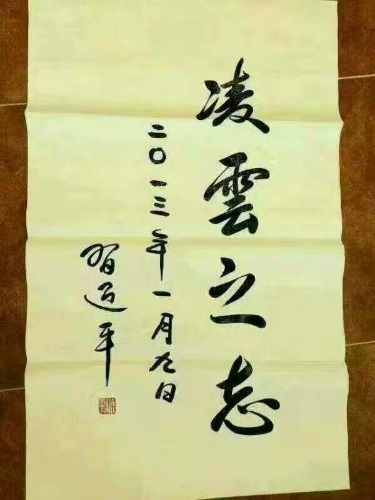 凌雲之志
二〇一三年一月九日
習近平